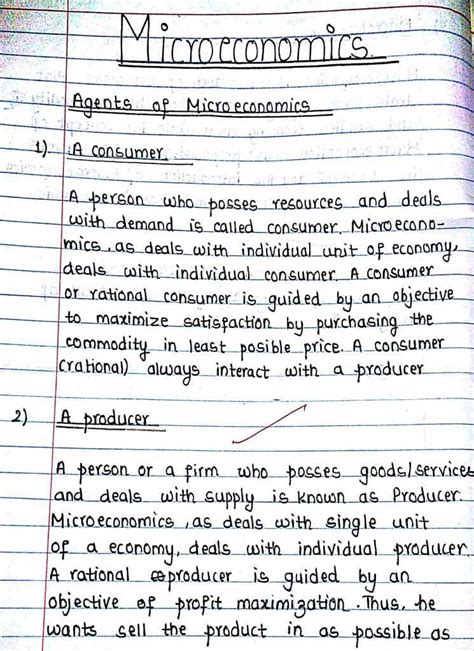 Microeconomics.
Agents of Microeconomics
1) A consumer.
A person who posses resources and deals
with demand is called consumer. Microecono-
mics, as deals with individual unit of economy,
deals with individual consumer. A consumer
or rational consumer is guided by an objective
to maximize satisfaction by purchasing the
commodity in least posible price. A consumer
(rational) always interact with a producer
2) A producer
A person or a firm who posses goods/services
and deals with supply is known as Producer.
Microeconomics, as deals with single unit
of a economy, deals with individual producer.
A rational producer is guided by an
objective of profit maximization. Thus, he
wants sell the product in as possible as